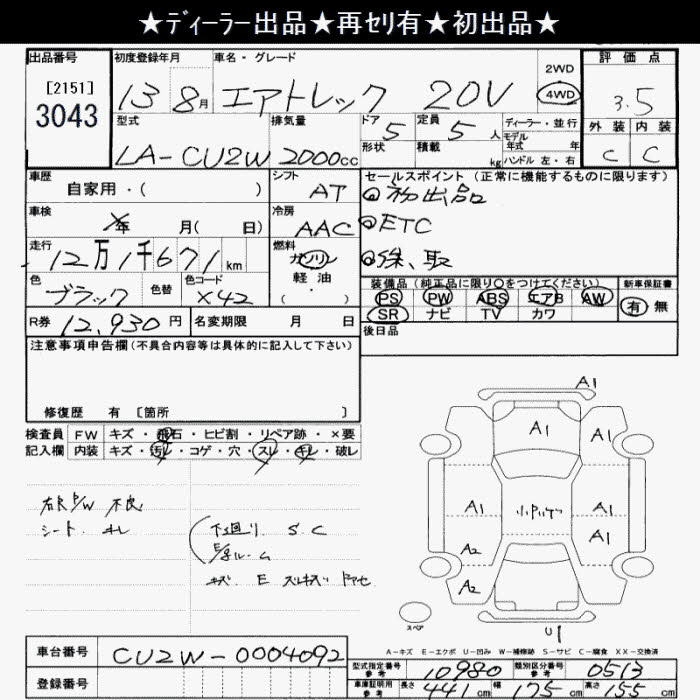 ★ディーラー出品★再セリ有★初出品★
出品番号 初度登録年月 車名・グレード 2WD 評価点
[2151] 13 8月 エアトレック 20V 4WD 3.5
3043
型式 排気量 ドア 5 定員 5人 ディーラー・並行 外装 内装
LA-CU2W 2000cc 形状 積載 kg モデル年式 年 C C
ハンドル 左・右
車歴 自家用・( ) シフト AT セールスポイント(正常に機能するものに限ります)
初出品
車検 年 月( 日) 冷房 AAC ETC
走行 12万1千671km 燃料 ガソリン 保、取
軽油
色 ブラック 色替 色コード X42 ( ) 装備品(純正品に限り○をつけてください) 新車保証書
PS PW ABS エアB AW 有 無
R券 12,930円 名変期限 月 日 SR ナビ TV カワ
後日品
注意事項申告欄(不具合内容等は具体的に記入して下さい)
修復歴 有 [箇所 ]
検査員 FW キズ・飛石・ヒビ割・リペア跡・×要
記入欄 内装 キズ・汚レ・コゲ・穴・スレ・キレ・破レ
右 P/W 不良
シート キレ
下廻り S.C
E/gルーム
キズ E
A1
A1 A1
A1 A1
A1
A2
A2
U1
スペア
A-キズ E-エクボ U-凹み W-補修跡 S-サビ C-腐食 XX-交換済
車台番号 CU2W-0004092 型式指定番号 参考 10980 類別区分番号 参考 0513
登録番号 車庫証明用 参考 長さ 441cm 幅 175cm 高さ 155cm